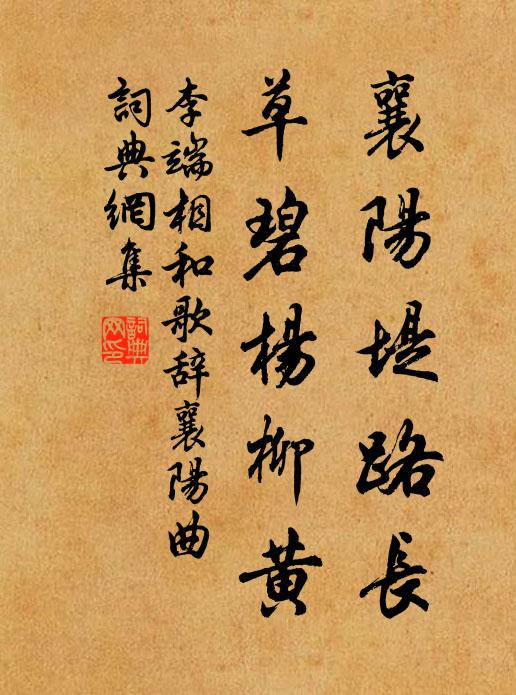 襄陽堤路長
草碧楊柳黄
李端相和歌辞襄陽曲
詞典網集
詞典网印